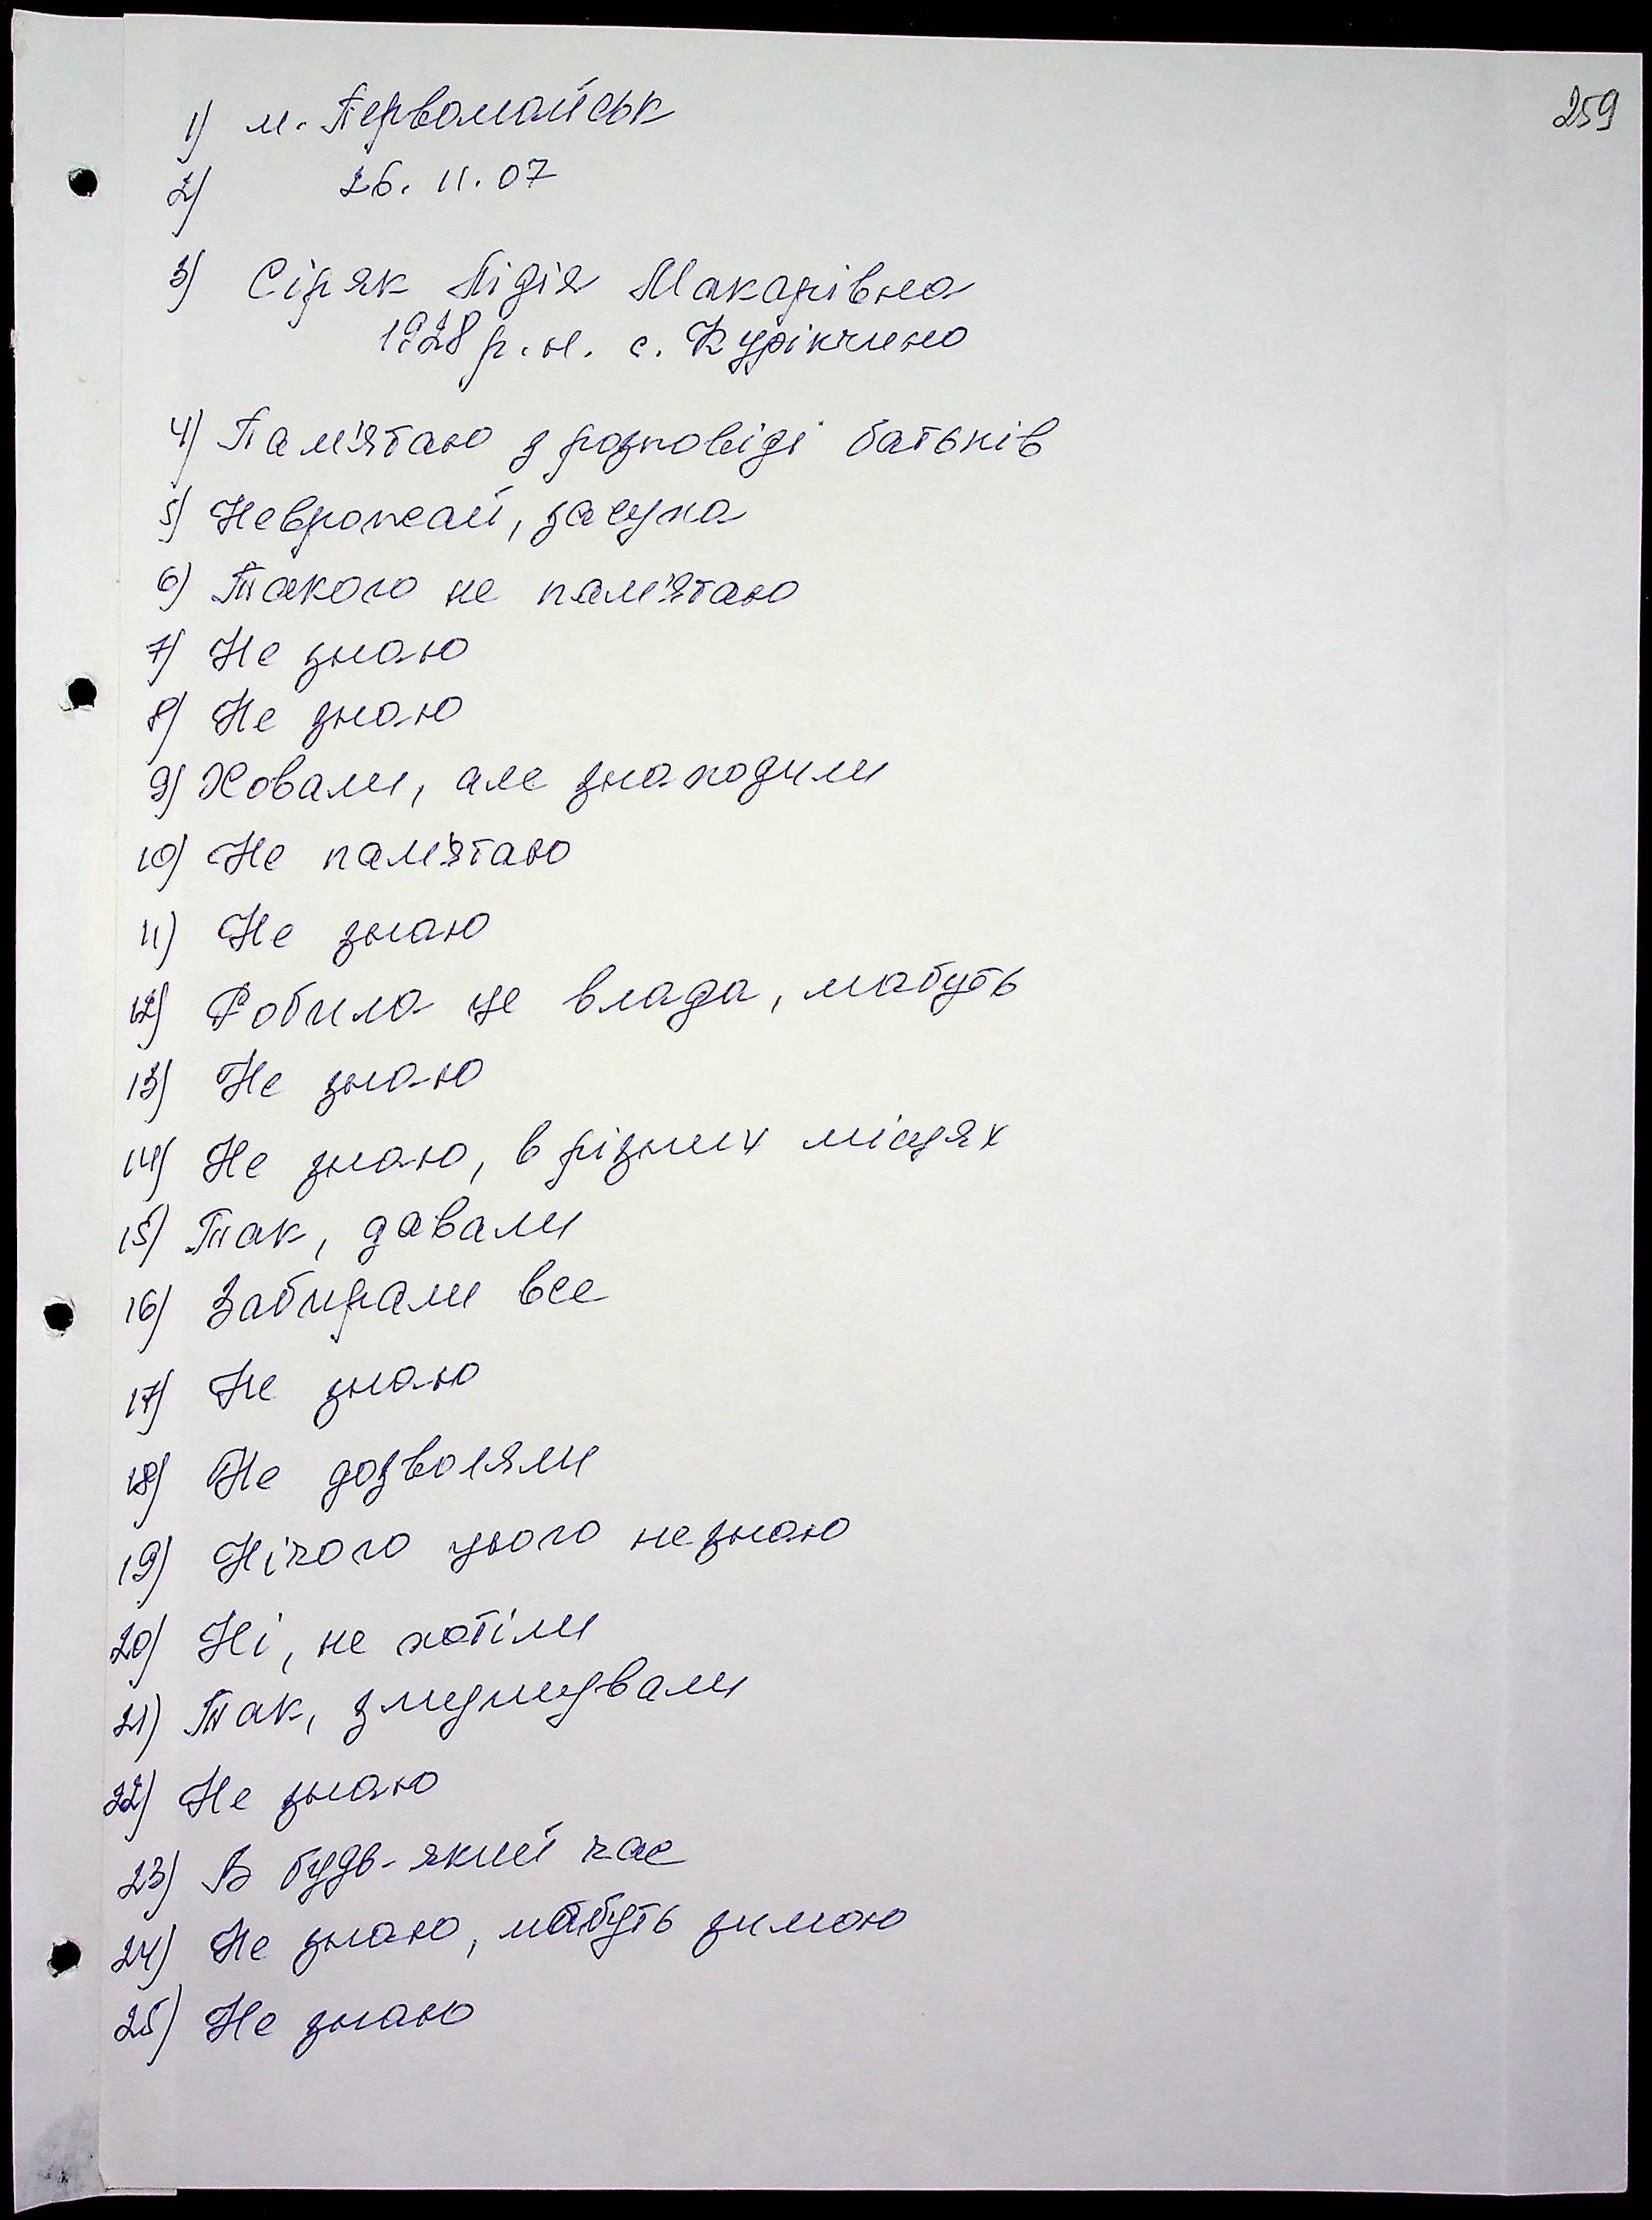 259
1) м. Первомайськ
2) 26. 11. 07
3) Сіряк Лідія Макарівна
1928 р. н. с. Курікчино
4) Пам'ятаю з розповіді батьків
5) Неврожай, засуха
6) Такого не пам'ятаю
7) Не знаю
8) Не знаю
9) Ховали, але знаходили
10) Не пам'ятаю
11) Не знаю
12) Робила це влада, мабуть
13) Не знаю
14) Не знаю, в різних місцях
15) Так, давали
16) Забирали все
17) Не знаю
18) Не дозволяли
19) Нічого цього не знаю
20) Ні, не хотіли
21) Так, змушували
22) Не знаю
23) В будь-який час
24) Не знаю, мабуть зимою
25) Не знаю